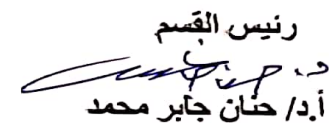 رئيس القسم
أ.د/ حنان جابر محمد